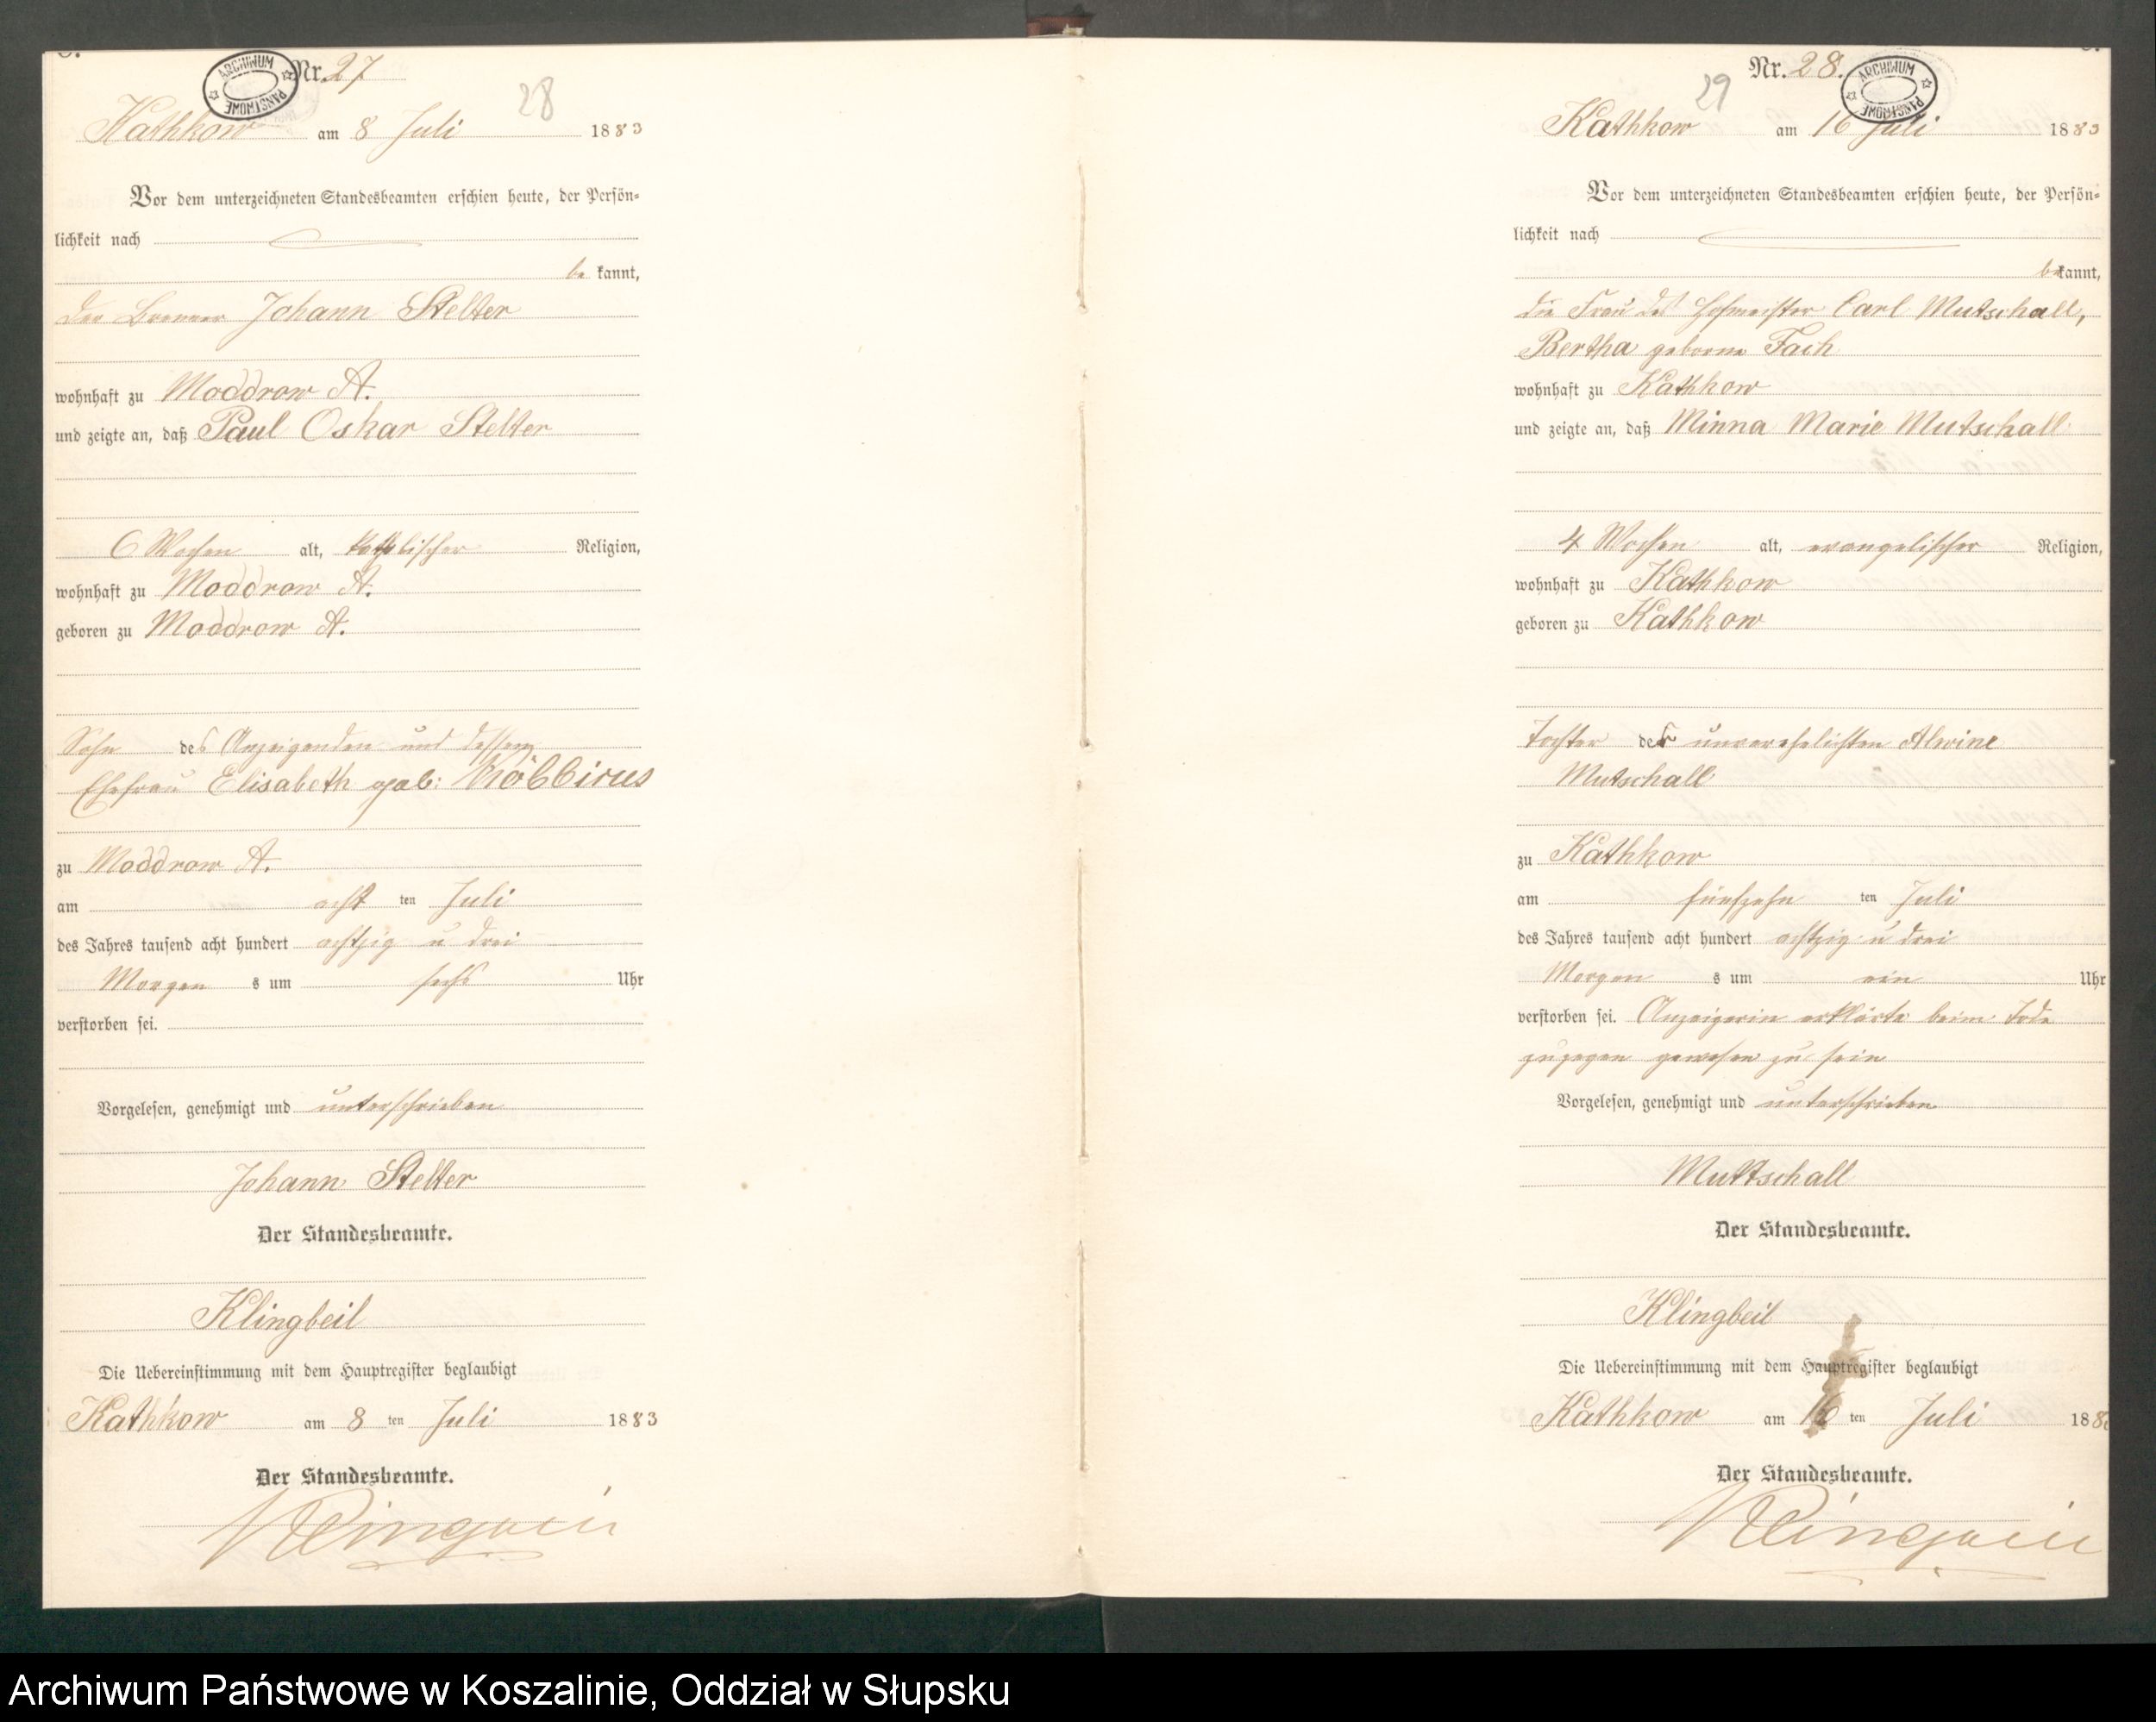 Nr. 27
ARCHIWUM PAŃSTWOWE
28
Kathkow am 8 Juli 1883
Vor dem unterzeichneten Standesbeamten erschien heute, der Persön-
lichkeit nach
be kannt,
der Brenner Johann Stelter
wohnhaft zu Moddrow A.
und zeigte an, daß Paul Oskar Stelter
6 Wochen alt, katholischer Religion,
wohnhaft zu Moddrow A.
geboren zu Moddrow A.
Sohn des Anzeigenden und dessen
Ehefrau Elisabeth geb:
zu Moddrow A.
am acht ten Juli
des Jahres tausend acht hundert achtzig u drei
Morgen s um sechs Uhr
verstorben sei.
Vorgelesen, genehmigt und unterschrieben
Johann Stelter
Der Standesbeamte.
Klingbeil
Die Uebereinstimmung mit dem Hauptregister beglaubigt
Kathkow am 8 ten Juli 1883
Der Standesbeamte.
Klingbeil
Nr. 28.
ARCHIWUM PAŃSTWOWE
29
Kathkow am 16 Juli 1883
Vor dem unterzeichneten Standesbeamten erschien heute, der Persön-
lichkeit nach
bekannt,
die Frau des Hofmeister Carl Mutschall,
Bertha geborne Fach
wohnhaft zu Kathkow
und zeigte an, daß Minna Marie Mutschall
4 Wochen alt, evangelischer Religion,
wohnhaft zu Kathkow
geboren zu Kathkow
Tochter der unverehelichten Alwine
Mutschall
zu Kathkow
am fünfzehn ten Juli
des Jahres tausend acht hundert achtzig u drei
Morgen s um ein Uhr
verstorben sei. Anzeigerin erklärte beim Tode
zugegen gewesen zu sein
Vorgelesen, genehmigt und unterschrieben
Muttschall
Der Standesbeamte.
Klingbeil
Die Uebereinstimmung mit dem Hauptregister beglaubigt
Kathkow am 16 ten Juli 188
Der Standesbeamte.
Klingbeil
Archiwum Państwowe w Koszalinie, Oddział w Słupsku